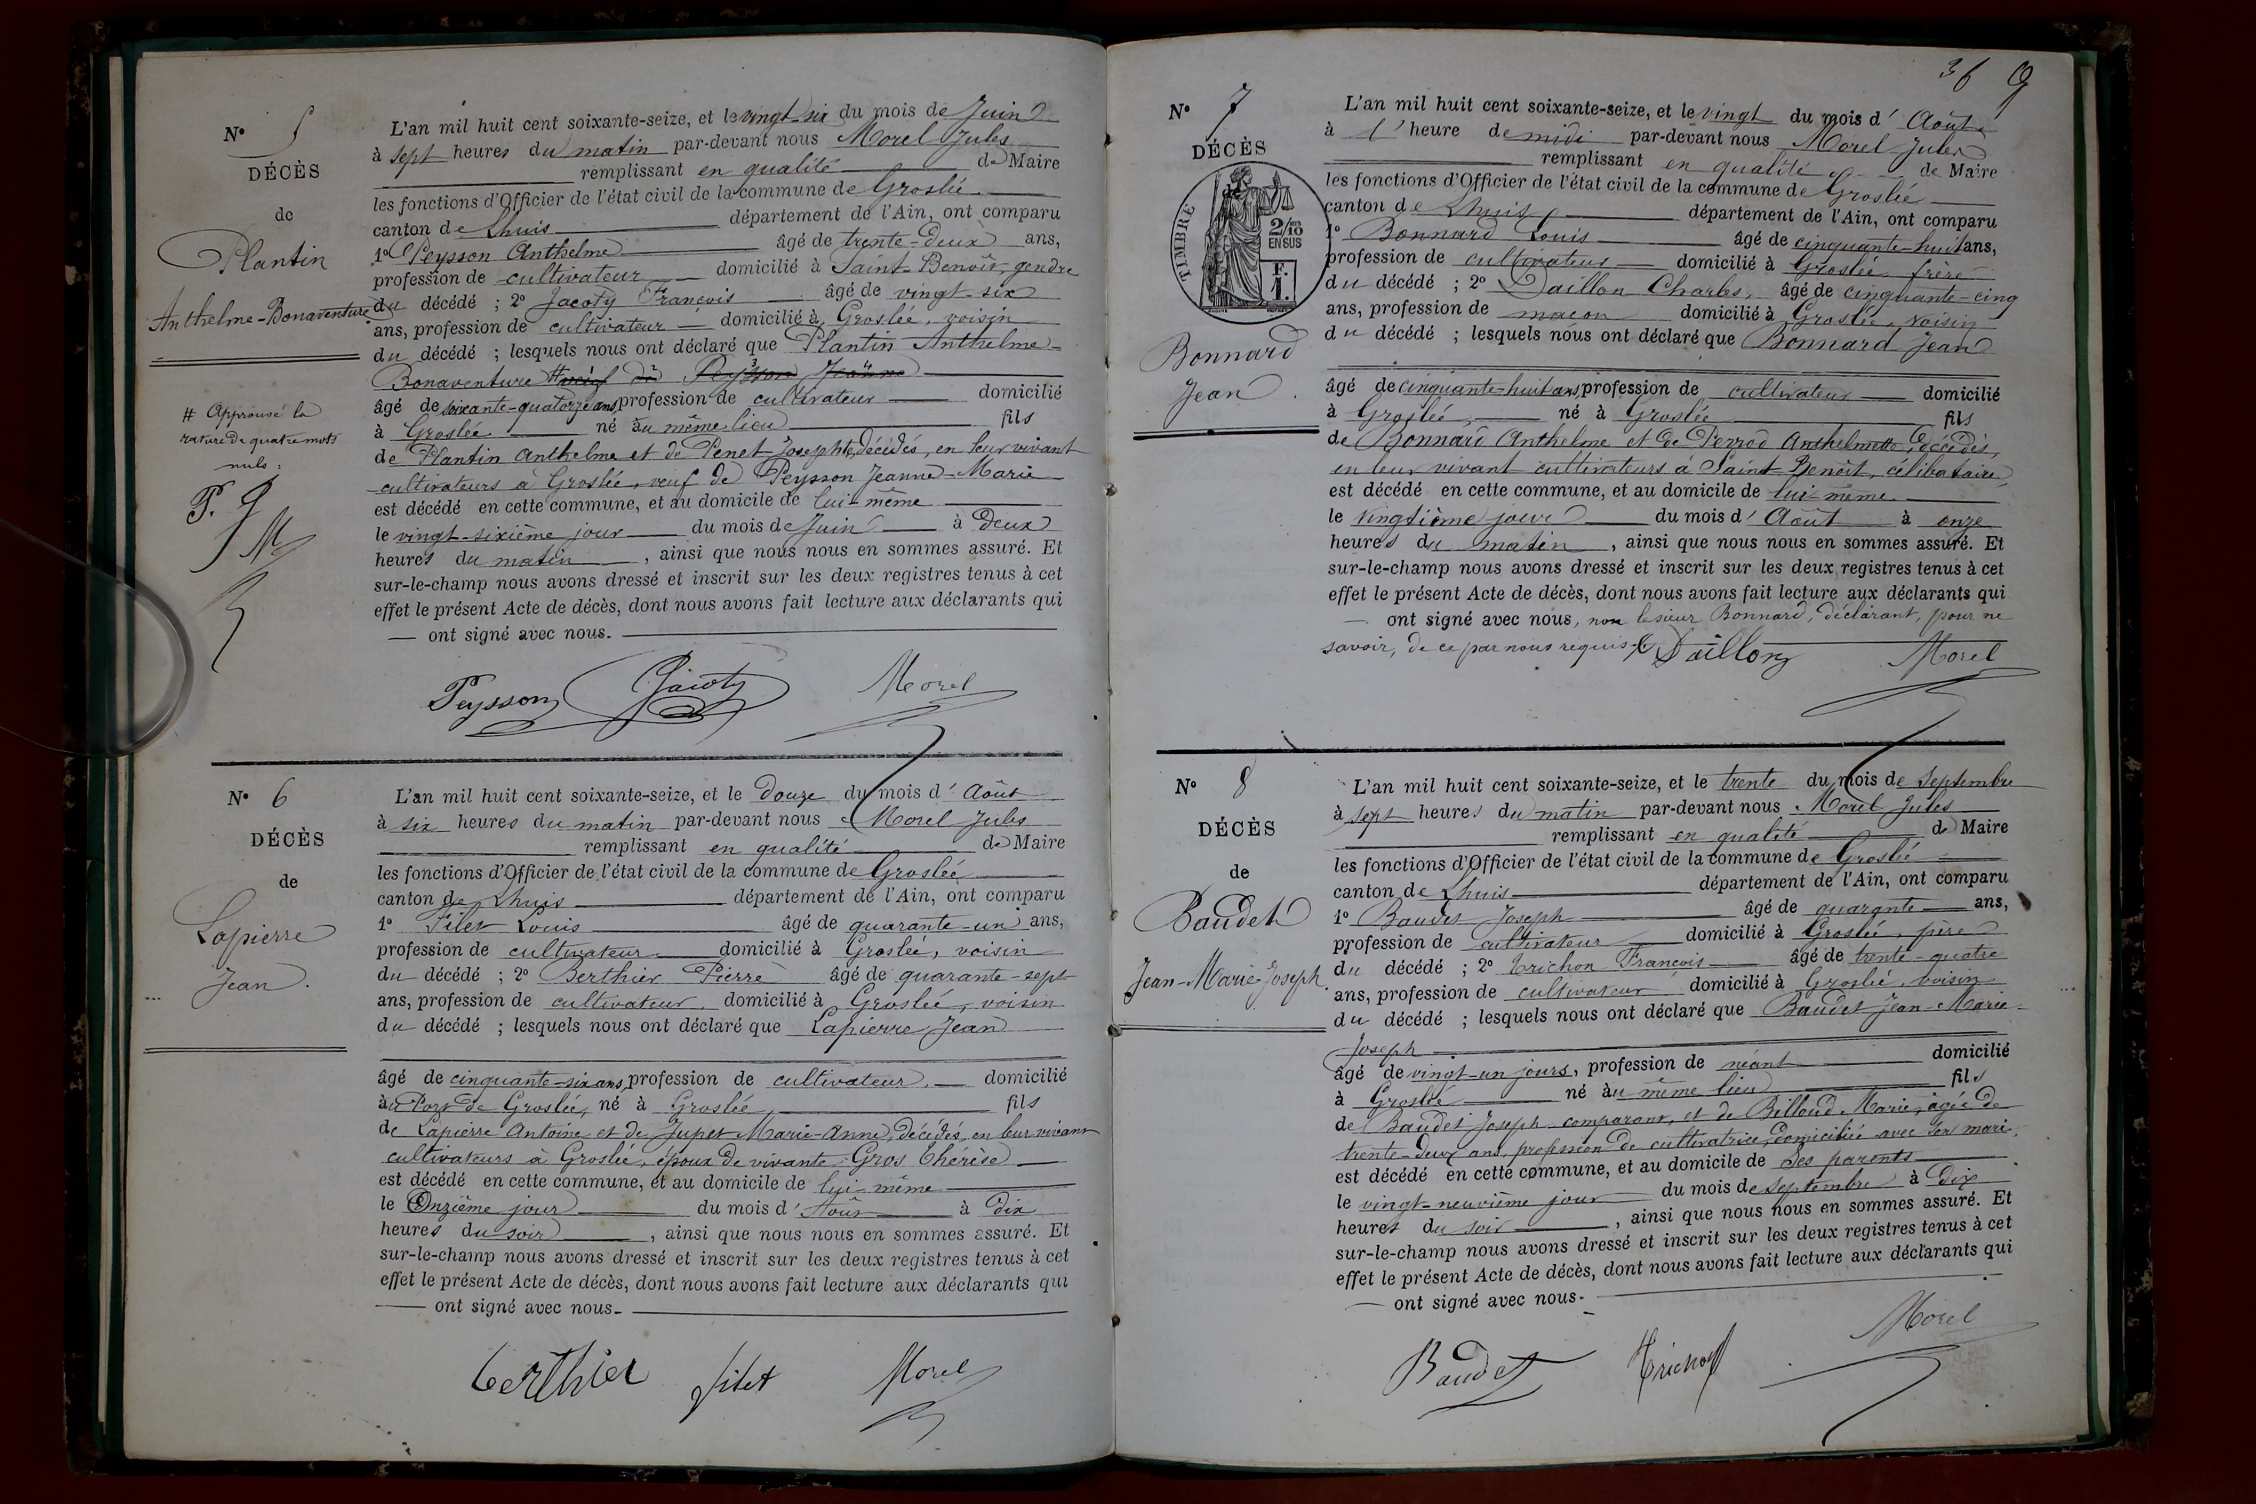 N° 5
DÉCÈS
de
Plantin
Anthelme-Bonaventure
# Approuvé la
rature de quatre mots
nuls :
P. J
M
L'an mil huit cent soixante-seize, et le vingt-six du mois de Juin
à sept heures du matin par-devant nous Morel Jules
remplissant en qualité de Maire
les fonctions d'Officier de l'état civil de la commune de Groslée
canton de Lhuis département de l'Ain, ont comparu
1° Peysson Anthelme âgé de trente-deux ans,
profession de cultivateur domicilié à Saint-Benoît, gendre
du décédé ; 2° Jacoty François âgé de vingt-six
ans, profession de cultivateur domicilié à Groslée, voisin
du décédé ; lesquels nous ont déclaré que Plantin Anthelme-
Bonaventure # veuf de Peysson Jeanne
âgé de soixante-quatorze ans, profession de cultivateur domicilié
à Groslée né au même lieu fils
de Plantin Anthelme et de Penet Josephte, décédés, en leur vivant
cultivateurs à Groslée, veuf de Peysson Jeanne-Marie
est décédé en cette commune, et au domicile de lui-même
le vingt-sixième jour du mois de Juin à deux
heures du matin, ainsi que nous nous en sommes assuré. Et
sur-le-champ nous avons dressé et inscrit sur les deux registres tenus à cet
effet le présent Acte de décès, dont nous avons fait lecture aux déclarants qui
ont signé avec nous.
Peysson Jacoty Morel
N° 6
DÉCÈS
de
Lapierre
Jean.
L'an mil huit cent soixante-seize, et le douze du mois d'Août
à six heures du matin par-devant nous Morel Jules
remplissant en qualité de Maire
les fonctions d'Officier de l'état civil de la commune de Groslée
canton de Lhuis département de l'Ain, ont comparu
1° Filet Louis âgé de quarante-un ans,
profession de cultivateur domicilié à Groslée, voisin
du décédé ; 2° Berthier Pierre âgé de quarante-sept
ans, profession de cultivateur domicilié à Groslée, voisin
du décédé ; lesquels nous ont déclaré que Lapierre Jean
âgé de cinquante-six ans, profession de cultivateur, domicilié
au Port de Groslée, né à Groslée, fils
de Lapierre Antoine et de Jupet Marie-Anne, décédés, en leur vivant
cultivateurs à Groslée, époux de vivante Gros Thérèse
est décédé en cette commune, et au domicile de lui-même
le Onzième jour du mois d'Août à dix
heures du soir, ainsi que nous nous en sommes assuré. Et
sur-le-champ nous avons dressé et inscrit sur les deux registres tenus à cet
effet le présent Acte de décès, dont nous avons fait lecture aux déclarants qui
ont signé avec nous.
Berthier filet Morel
36 9
N° 7
DÉCÈS
de
TIMBRE
2/10
EN SUS
F.
1.
Bonnard
Jean.
L'an mil huit cent soixante-seize, et le vingt du mois d'Août
à l'heure de midi par-devant nous Morel Jules
remplissant en qualité de Maire
les fonctions d'Officier de l'état civil de la commune de Groslée
canton de Lhuis département de l'Ain, ont comparu
1° Bonnard Louis âgé de cinquante-huit ans,
profession de cultivateur domicilié à Groslée, frère
du décédé ; 2° Daillon Charles, âgé de cinquante-cinq
ans, profession de maçon domicilié à Groslée, voisin
du décédé ; lesquels nous ont déclaré que Bonnard Jean
âgé de cinquante-huit ans, profession de cultivateur domicilié
à Groslée né à Groslée fils
de Bonnard Anthelme et de Perrod Anthelmette, décédés,
en leur vivant cultivateurs à Saint Benoît, célibataire
est décédé en cette commune, et au domicile de lui-même
le vingtième jour du mois d'Août à onze
heures du matin, ainsi que nous nous en sommes assuré. Et
sur-le-champ nous avons dressé et inscrit sur les deux registres tenus à cet
effet le présent Acte de décès, dont nous avons fait lecture aux déclarants qui
ont signé avec nous, non le sieur Bonnard, déclarant, pour ne
savoir, de ce par nous requis.
Daillon Morel
N° 8
DÉCÈS
de
Baudet
Jean-Marie-Joseph.
L'an mil huit cent soixante-seize, et le trente du mois de Septembre
à sept heures du matin par-devant nous Morel Jules
remplissant en qualité de Maire
les fonctions d'Officier de l'état civil de la commune de Groslée
canton de Lhuis département de l'Ain, ont comparu
1° Baudet Joseph âgé de quarante ans,
profession de cultivateur domicilié à Groslée, père
du décédé ; 2° Trichon François âgé de trente-quatre
ans, profession de cultivateur domicilié à Groslée, voisin
du décédé ; lesquels nous ont déclaré que Baudet Jean-Marie-
Joseph
âgé de vingt-un jours, profession de néant domicilié
à Groslée né au même lieu fils
de Baudet Joseph comparant, et de Billoud Marie, âgée de
trente-deux ans, profession de cultivatrice, domiciliée avec son mari,
est décédé en cette commune, et au domicile de ses parents
le vingt-neuvième jour du mois de Septembre à dix
heures du soir, ainsi que nous nous en sommes assuré. Et
sur-le-champ nous avons dressé et inscrit sur les deux registres tenus à cet
effet le présent Acte de décès, dont nous avons fait lecture aux déclarants qui
ont signé avec nous.
Baudet Trichon Morel